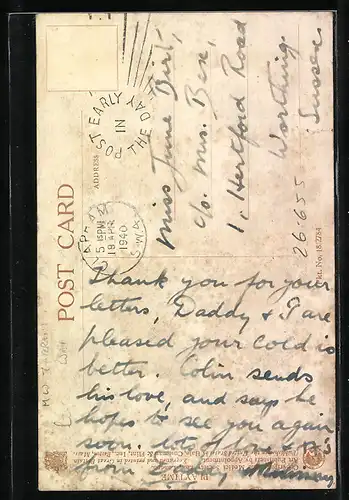 POST CARD
ADDRESS
POST EARLY IN THE DAY
CLAPHAM
5 15PM
18 APR
1940
S.W.4
Miss June Birt,
c/o Mrs. Bex,
1, Hertford Road
Worthing
Sussex
26-655
Thank you for your
letters, Daddy & I are
pleased your cold is
better. Colin sends
his love, and says he
hopes to see you again
soon. lots of love & x's
from Daddy Mummy
PLAYTIME